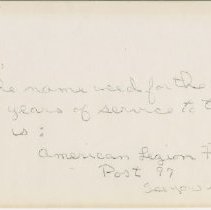 he name used for the
years of service to t
is:
American Legion
Post 97